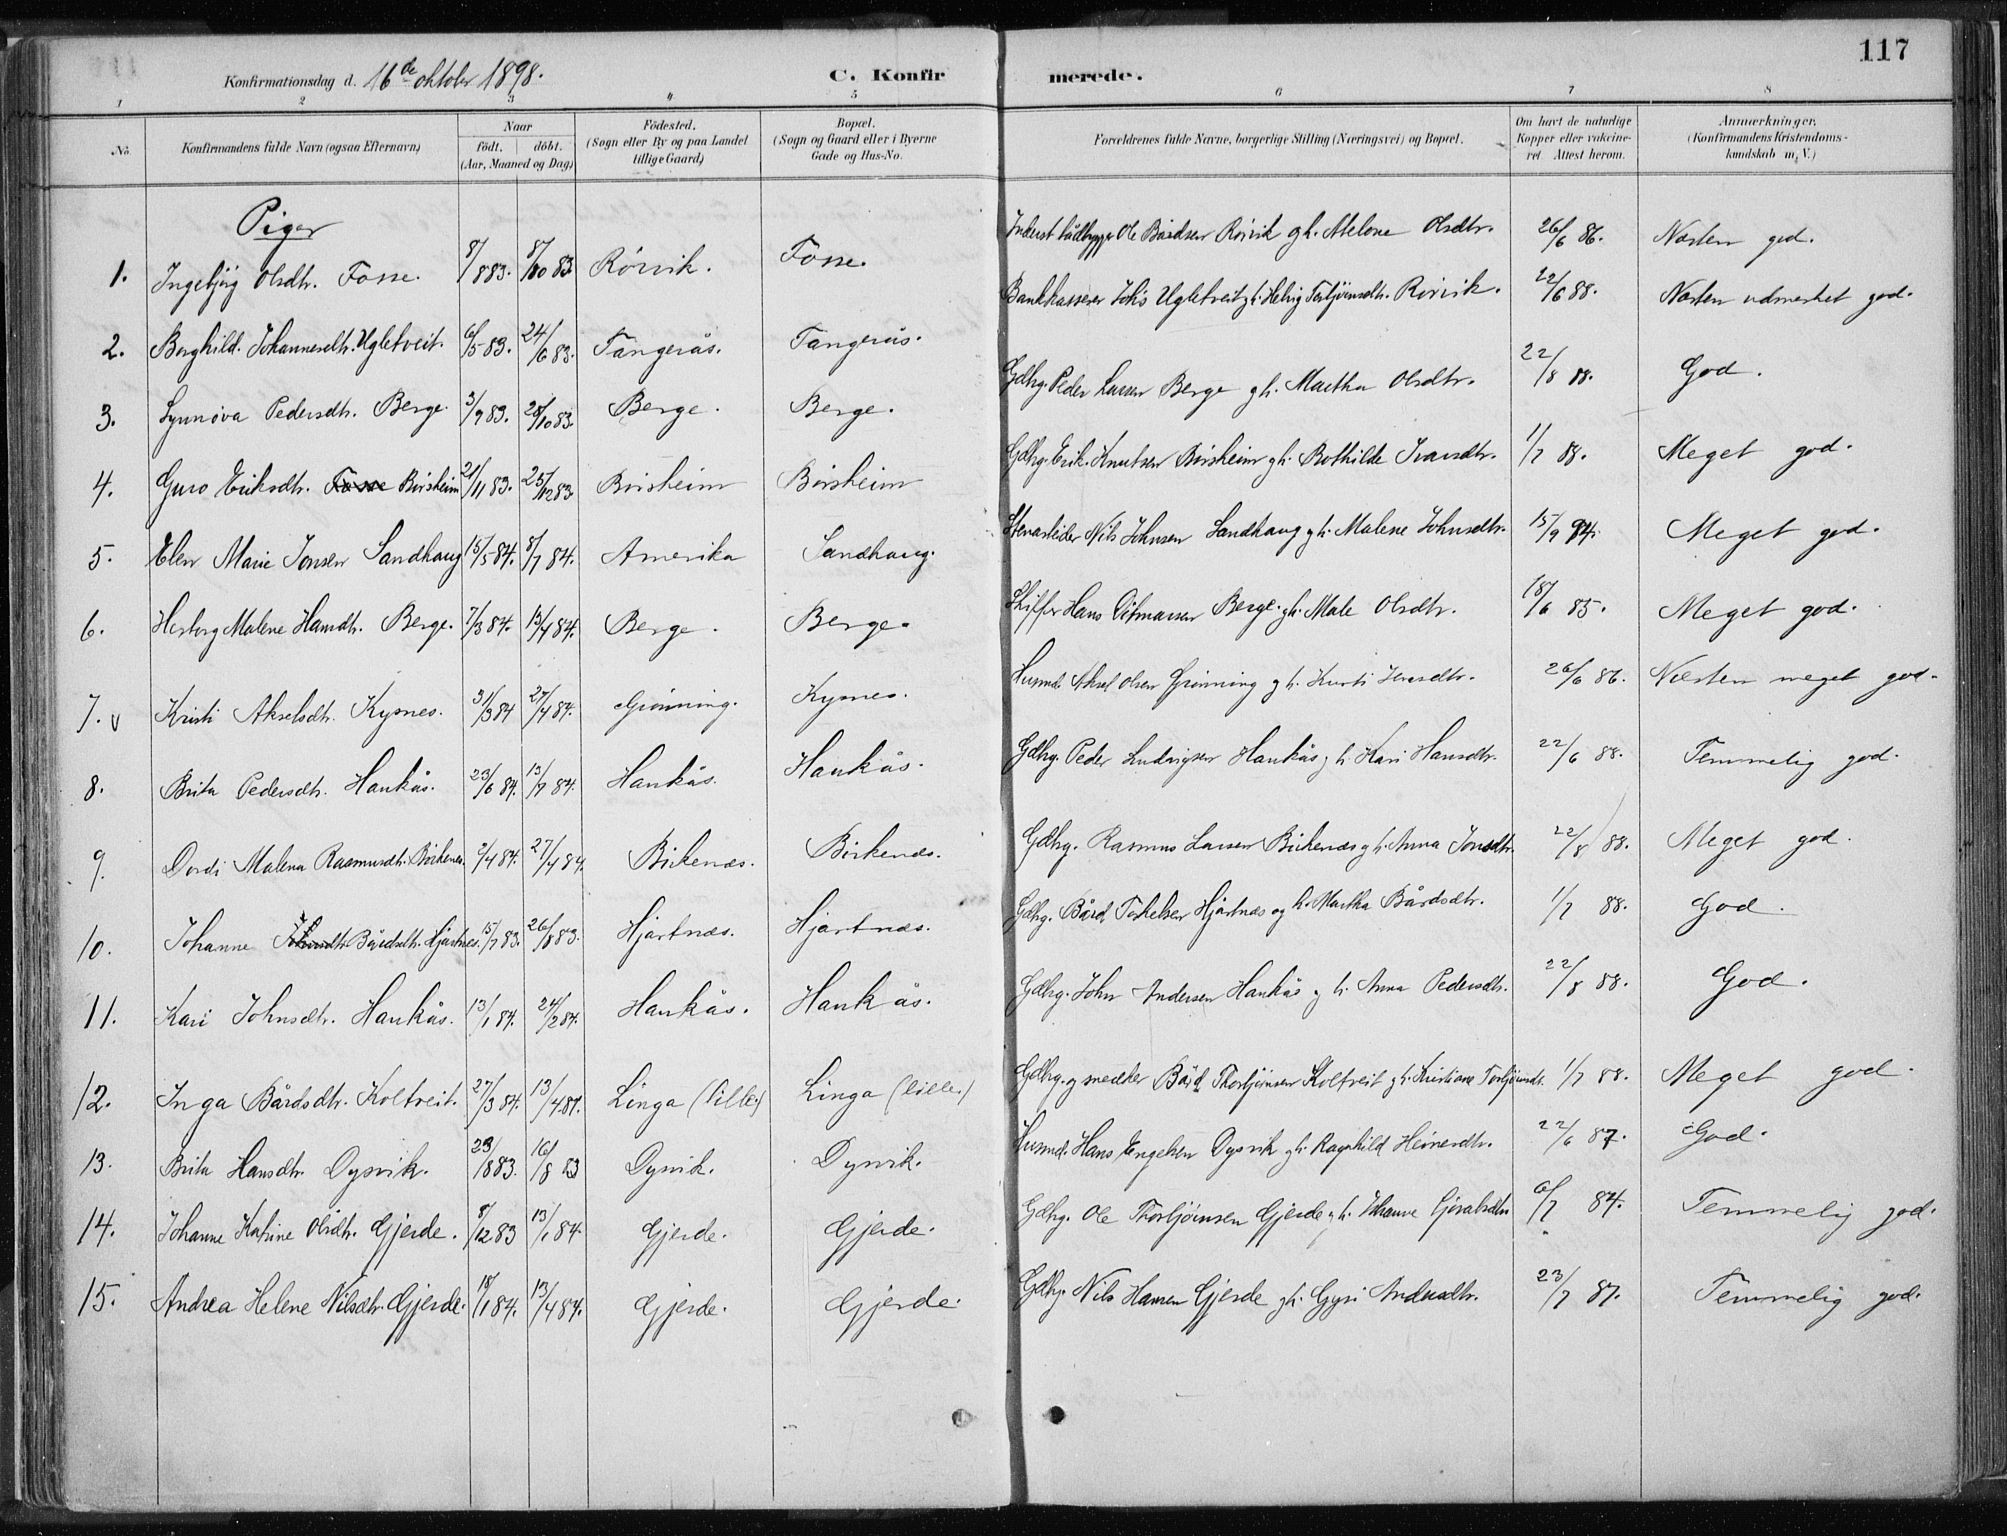 117
Konfirmationsdag d. 16de oktober 1898. C. Konfirmerede.
1 2 3 4 5 6 7 8
No. Konfirmandens fulde Navn (ogsaa Efternavn) Naar født. døbt. (Aar, Maaned og Dag) Födested. (Sogn eller By og paa Landet tillige Gaard) Bopæl. (Sogn og Gaard eller i Byerne Gade og Hus-No. Forældrenes fulde Navne, borgerlige Stilling (Næringsvei) og Bopæl. Om havt de naturlige Kopper eller vaccineret Attest herom. Anmærkninger. (Konfirmandens Kristendomskundskab m. V.)
Piger
1. Ingebjørg Olsdtr. Fosse. 8/8 83. 8/10 83. Rörvik. Fosse. Inderst bådbygger Ole Bårdsen Rörvik og h. Alelone Olsdtr. 26/6 86. Næsten god.
2. Borghild Johannesdtr. Ugletveit. 6/5 83. 24/6 83. Tangerås. Tangerås. Bankkasserer Johs Ugletveit g h. Helvig Torbjörnsdtr. Rörvik. 22/6 88. Næsten udmerket god.
3. Synnöva Pedersdtr. Berge. 3/9 83. 28/10 83. Berge. Berge. Gdbrg. Peder Larsen Berge g h. Martha Olsdtr. 22/8 88. God.
4. Guro Eriksdtr. Fosse Börsheim 21/11 83. 25/12 83. Börsheim Börsheim Gdbrg. Erik Knutsen Börsheim g h. Bothilde Ivarsdtr. 1/7 88. Meget god.
5. Elen Marie Jonsen Sandhaug 15/5 84. 8/7 84. Amerika Sandhaug. Stenarbeider Nils Johnsen Sandhaug g h. Malene Johnsdtr. 15/9 94. Meget god.
6. Herborg Malene Hansdtr. Berge. 7/3 84. 13/4 84. Berge. Berge. Skiffer Hans Ditmarsen Berge. g h. Male Olsdtr. 18/6 85. Meget god.
7. v Kristi Akselsdtr. Kysnes. 31/3 84 27/4 84. Grönning. Kysnes. Husmd. Aksel Olsen Grönning g h. Kristi Iversdtr. 26/6 86. Næsten meget god.
8. Brita Pedersdtr. Haukås. 23/6 84. 13/7 84. Haukås. Haukås. Gdbrg. Peder Ludvigsen Haukås g h. Kari Hansdtr. 22/6 88. Temmelig god.
9. Dordi Malena Rasmusdtr. Birkenes. 2/4 84. 27/4 84. Birkenæs. Birkenæs. Gdbrg. Rasmus Larsen Birkenæs g h. Anna Jonsdtr. 22/8 88. Meget god.
10. Johanne Johnsdtr. Bårdsdtr. Hjartnes. 15/7 83. 26/8 83. Hjartnæs. Hjartnæs. Gdbrg. Bård Torkelsen Hjartnæs og h. Martha Bårdsdtr. 1/7 88. God.
11. Kari Johnsdtr. Haukås. 13/1 84. 24/2 84. Haukås. Haukås. Gdbrg. John Andersen Haukås g h. Anna Pedersdtr. 22/8 88. God.
12. Inga Bårdsdtr. Koltveit. 27/3 84. 13/4 84. Linga (lille) Linga (lille) Gdbrg. og snedker Bård Thorbjörnsen Koltveit g h. Kristiane Torbjörnsdtr. 1/7 88. Meget god.
13. Brita Hansdtr. Dysvik. 23/8 83. 16/8 83 Dysvik. Dysvik. Husmd. Hans Engelsen Dysvik g h. Ragnhild Heinesdtr. 22/6 87. God.
14. Johanne Katrine Olsdtr. Gjerde. 8/12 83 13/1 84. Gjerde. Gjerde. Gdbrg. Ole Thorbjörnsen Gjerde g h. Johanne 6/7 84. Temmelig god.
15. Andrea Helene Nilsdtr. Gjerde. 18/1 84. 13/4 84. Gjerde. Gjerde. Gdbrg. Nils Hansen Gjerde g h. Gyri Andersdtr. 23/7 87. Temmelig god.